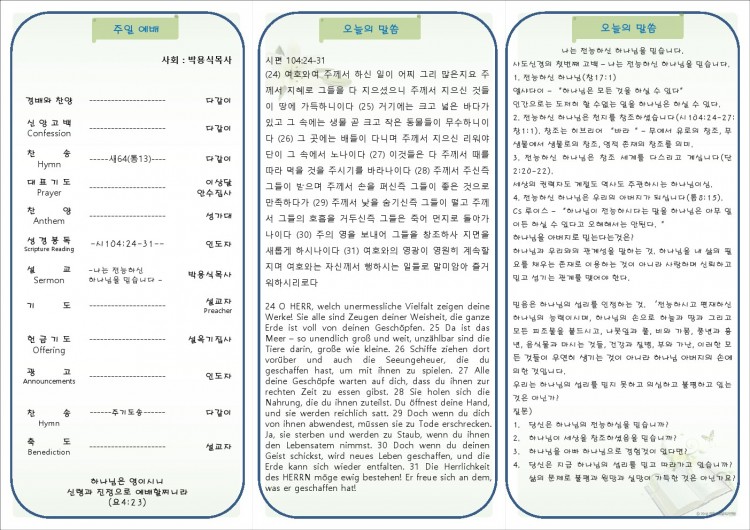 주일 예배
사회 : 박용식목사
경배와 찬양 ------------------ 다같이
신앙고백 ------------------ 다같이
Confession
찬 송 -----새64(통13)---- 다같이
Hymn
대표기도 ------------------ 이상달
Prayer 안수집사
찬 양 ------------------ 성가대
Anthem
성경봉독 -시104:24-31-- 인도자
Scripture Reading
설 교 -나는 전능하신 박용식목사
Sermon 하나님을 믿습니다 -
기 도 ------------------ 설교자
Preacher
헌금기도 ------------------ 설옥기집사
Offering
광 고 ------------------ 인도자
Announcements
찬 송 ------주기도송------ 다같이
Hymn
축 도 ------------------ 설교자
Benediction
하나님은 영이시니
신령과 진정으로 예배할찌니라
(요4:23)
오늘의 말씀
시편 104:24-31
(24) 여호와여 주께서 하신 일이 어찌 그리 많은지요 주
께서 지혜로 그들을 다 지으셨으니 주께서 지으신 것들
이 땅에 가득하니이다 (25) 거기에는 크고 넓은 바다가
있고 그 속에는 생물 곧 크고 작은 동물들이 무수하니이
다 (26) 그 곳에는 배들이 다니며 주께서 지으신 리워야
단이 그 속에서 노나이다 (27) 이것들은 다 주께서 때를
따라 먹을 것을 주시기를 바라나이다 (28) 주께서 주신즉
그들이 받으며 주께서 손을 펴신즉 그들이 좋은 것으로
만족하다가 (29) 주께서 낯을 숨기신즉 그들이 떨고 주께
서 그들의 호흡을 거두신즉 그들은 죽어 먼지로 돌아가
나이다 (30) 주의 영을 보내어 그들을 창조하사 지면을
새롭게 하시나이다 (31) 여호와의 영광이 영원히 계속할
지며 여호와는 자신께서 행하시는 일들로 말미암아 즐거
워하시리로다
24 O HERR, welch unermessliche Vielfalt zeigen deine
Werke! Sie alle sind Zeugen deiner Weisheit, die ganze
Erde ist voll von deinen Geschöpfen. 25 Da ist das
Meer – so unendlich groß und weit, unzählbar sind die
Tiere darin, große wie kleine. 26 Schiffe ziehen dort
vorüber und auch die Seeungeheuer, die du
geschaffen hast, um mit ihnen zu spielen. 27 Alle
deine Geschöpfe warten auf dich, dass du ihnen zur
rechten Zeit zu essen gibst. 28 Sie holen sich die
Nahrung, die du ihnen zuteilst. Du öffnest deine Hand,
und sie werden reichlich satt. 29 Doch wenn du dich
von ihnen abwendest, müssen sie zu Tode erschrecken.
Ja, sie sterben und werden zu Staub, wenn du ihnen
den Lebensatem nimmst. 30 Doch wenn du deinen
Geist schickst, wird neues Leben geschaffen, und die
Erde kann sich wieder entfalten. 31 Die Herrlichkeit
des HERRN möge ewig bestehen! Er freue sich an dem,
was er geschaffen hat!
오늘의 말씀
나는 전능하신 하나님을 믿습니다.
사도신경의 첫번째 고백 – 나는 전능하신 하나님을 믿습니다.
1. 전능하신 하나님(창17:1)
엘샤다이 – "하나님은 모든 것을 하실 수 있다"
인간으로는 도저히 할 수없는 일을 하나님은 하실 수 있다.
2. 전능하신 하나님은 천지를 창조하셨습니다(시104:24-27;
창1:1). 창조는 히브리어 "바라" – 무에서 유로의 창조, 무
생물에서 생물로의 창조, 영적 존재의 창조를 의미.
3. 전능하신 하나님은 창조 세계를 다스리고 계십니다(단
2:20-22).
세상의 권력자도 계절도 역사도 주관하시는 하나님이심.
4. 전능하신 하나님은 우리의 아버지가 되십니다(롬8:15).
Cs 루이스 – "하나님이 전능하시다는 말을 하나님은 아무 일
이든 하실 수 있다고 오해해서는 안된다. "
하나님을 아버지로 믿는다는것은?
하나님과 우리와의 관계성을 말하는 것. 하나님을 내 삶의 필
요를 채우는 존재로 이용하는 것이 아니라 사랑하며 신뢰하고
믿고 섬기는 관계를 맺어야 한다.
믿음은 하나님의 섭리를 인정하는 것. '전능하시고 편재하신
하나님의 능력이시며, 하나님의 손으로 하늘과 땅과 그리고
모든 피조물을 붙드시고, 나뭇잎과 풀, 비와 가뭄, 풍년과 흉
년, 음식물과 마시는 것들, 건강과 질병, 부와 가난, 이러한 모
든 것들이 우연히 생기는 것이 아니라 하나님 아버지의 손에
의한 것입니다.
우리는 하나님의 섭리를 믿지 못하고 의심하고 불평하고 있는
것은 아닌가?
질문)
1. 당신은 하나님의 전능하심을 믿습니까?
2. 하나님이 세상을 창조하셨음을 믿습니까?
3. 하나님을 아빠 하나님으로 경험한것이 있다면?
4. 당신은 지금 하나님의 섭리를 믿고 따라가고 있습니까?
삶의 문제로 불평과 원망과 실망이 가득한 것은 아닌가요?